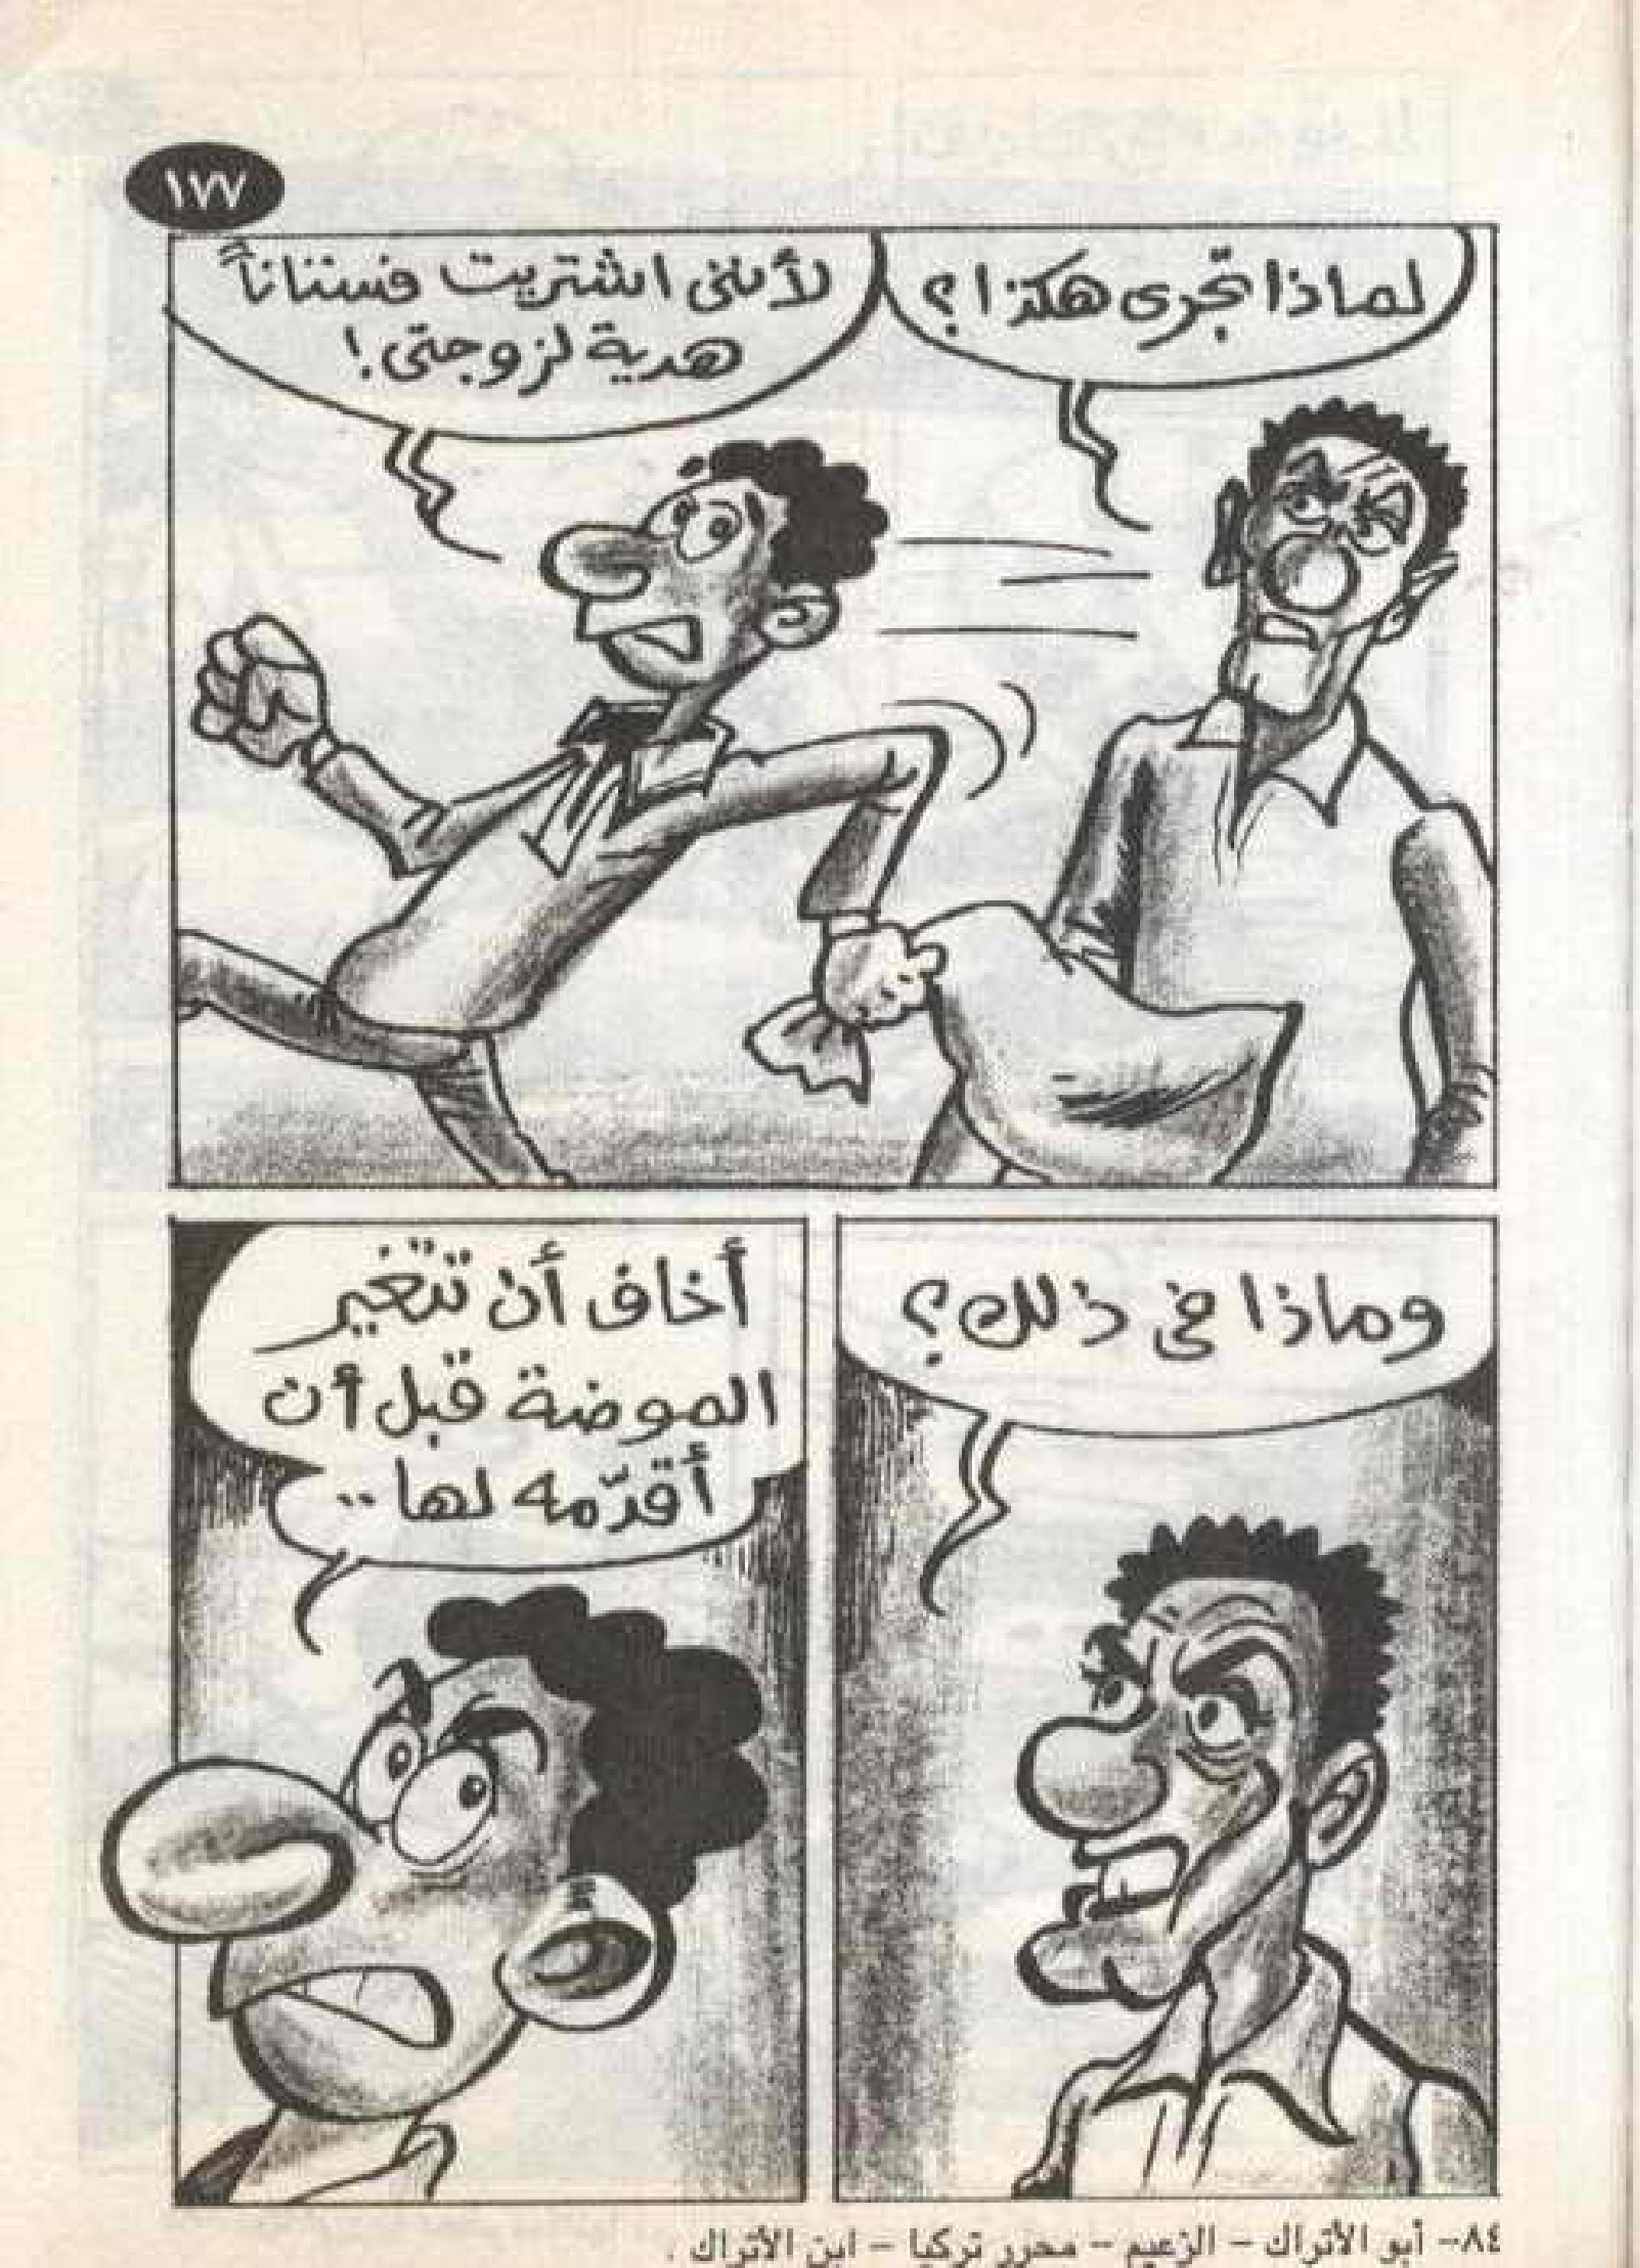 ١٧٧
لماذا تجرى هكذا؟
لأننى اشتريت فستاناً
هدية لزوجتى!
وماذا فى ذلك؟
أخاف أن تتغير
الموضة قبل أن
أقدّمه لها..
٨٤- أبو الأتراك - الزعيم - محرر تركيا - ابن الأتراك .